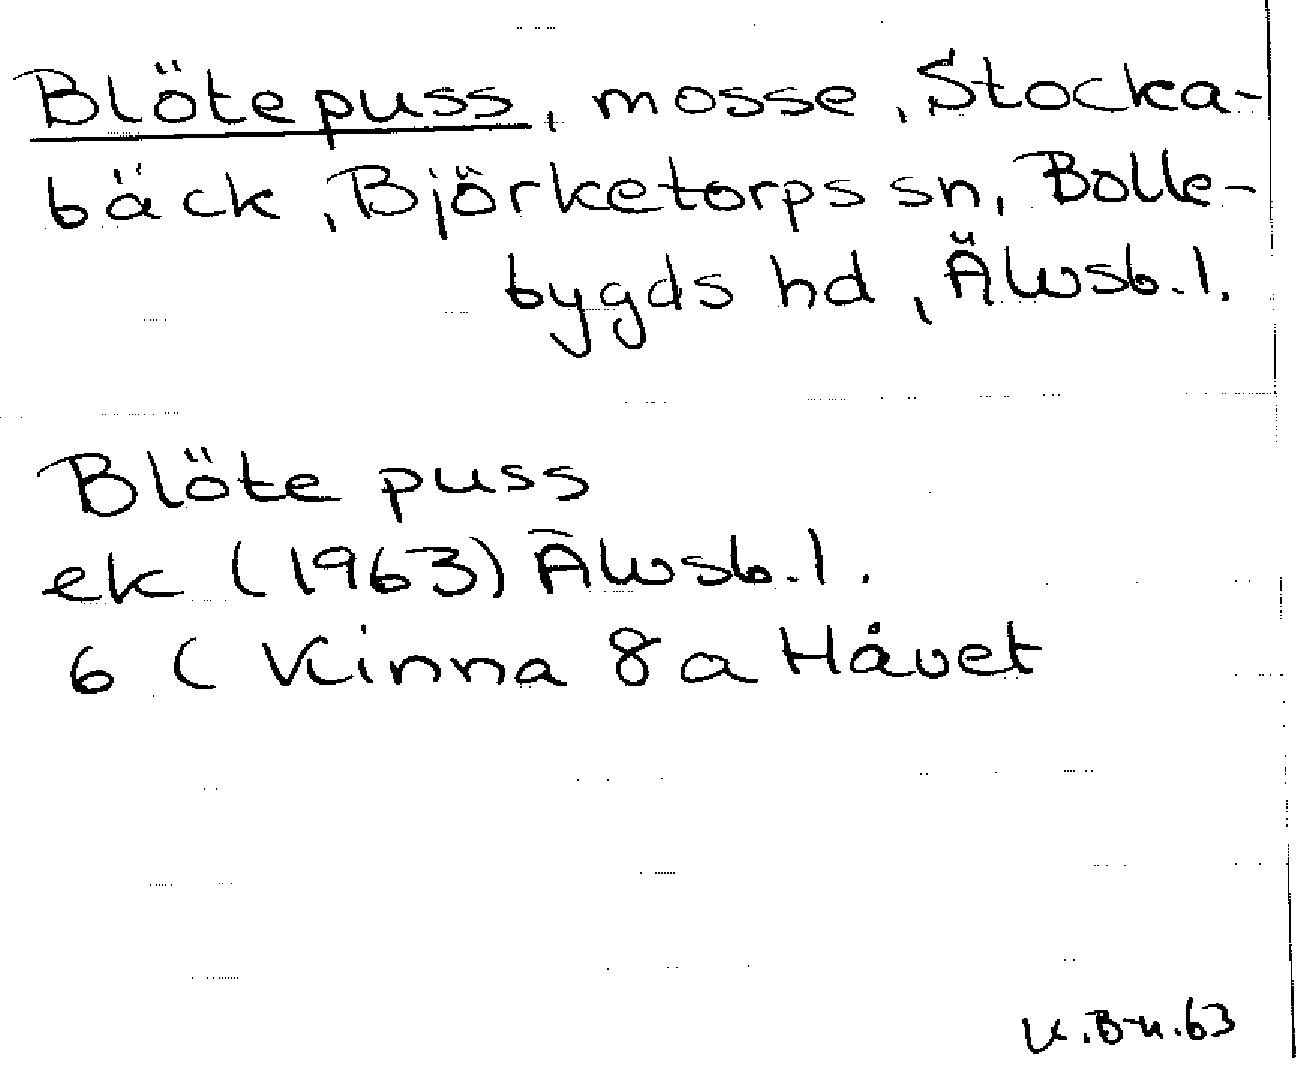 Blötepuss, mosse, Stocka-
bäck, Björketorps sn, Bolle-
bygds hd, Älvsb.l.
Blöte puss
ek (1963) Älvsb.l.
6 ( Kinna 8a Håvet
K.B-n.63